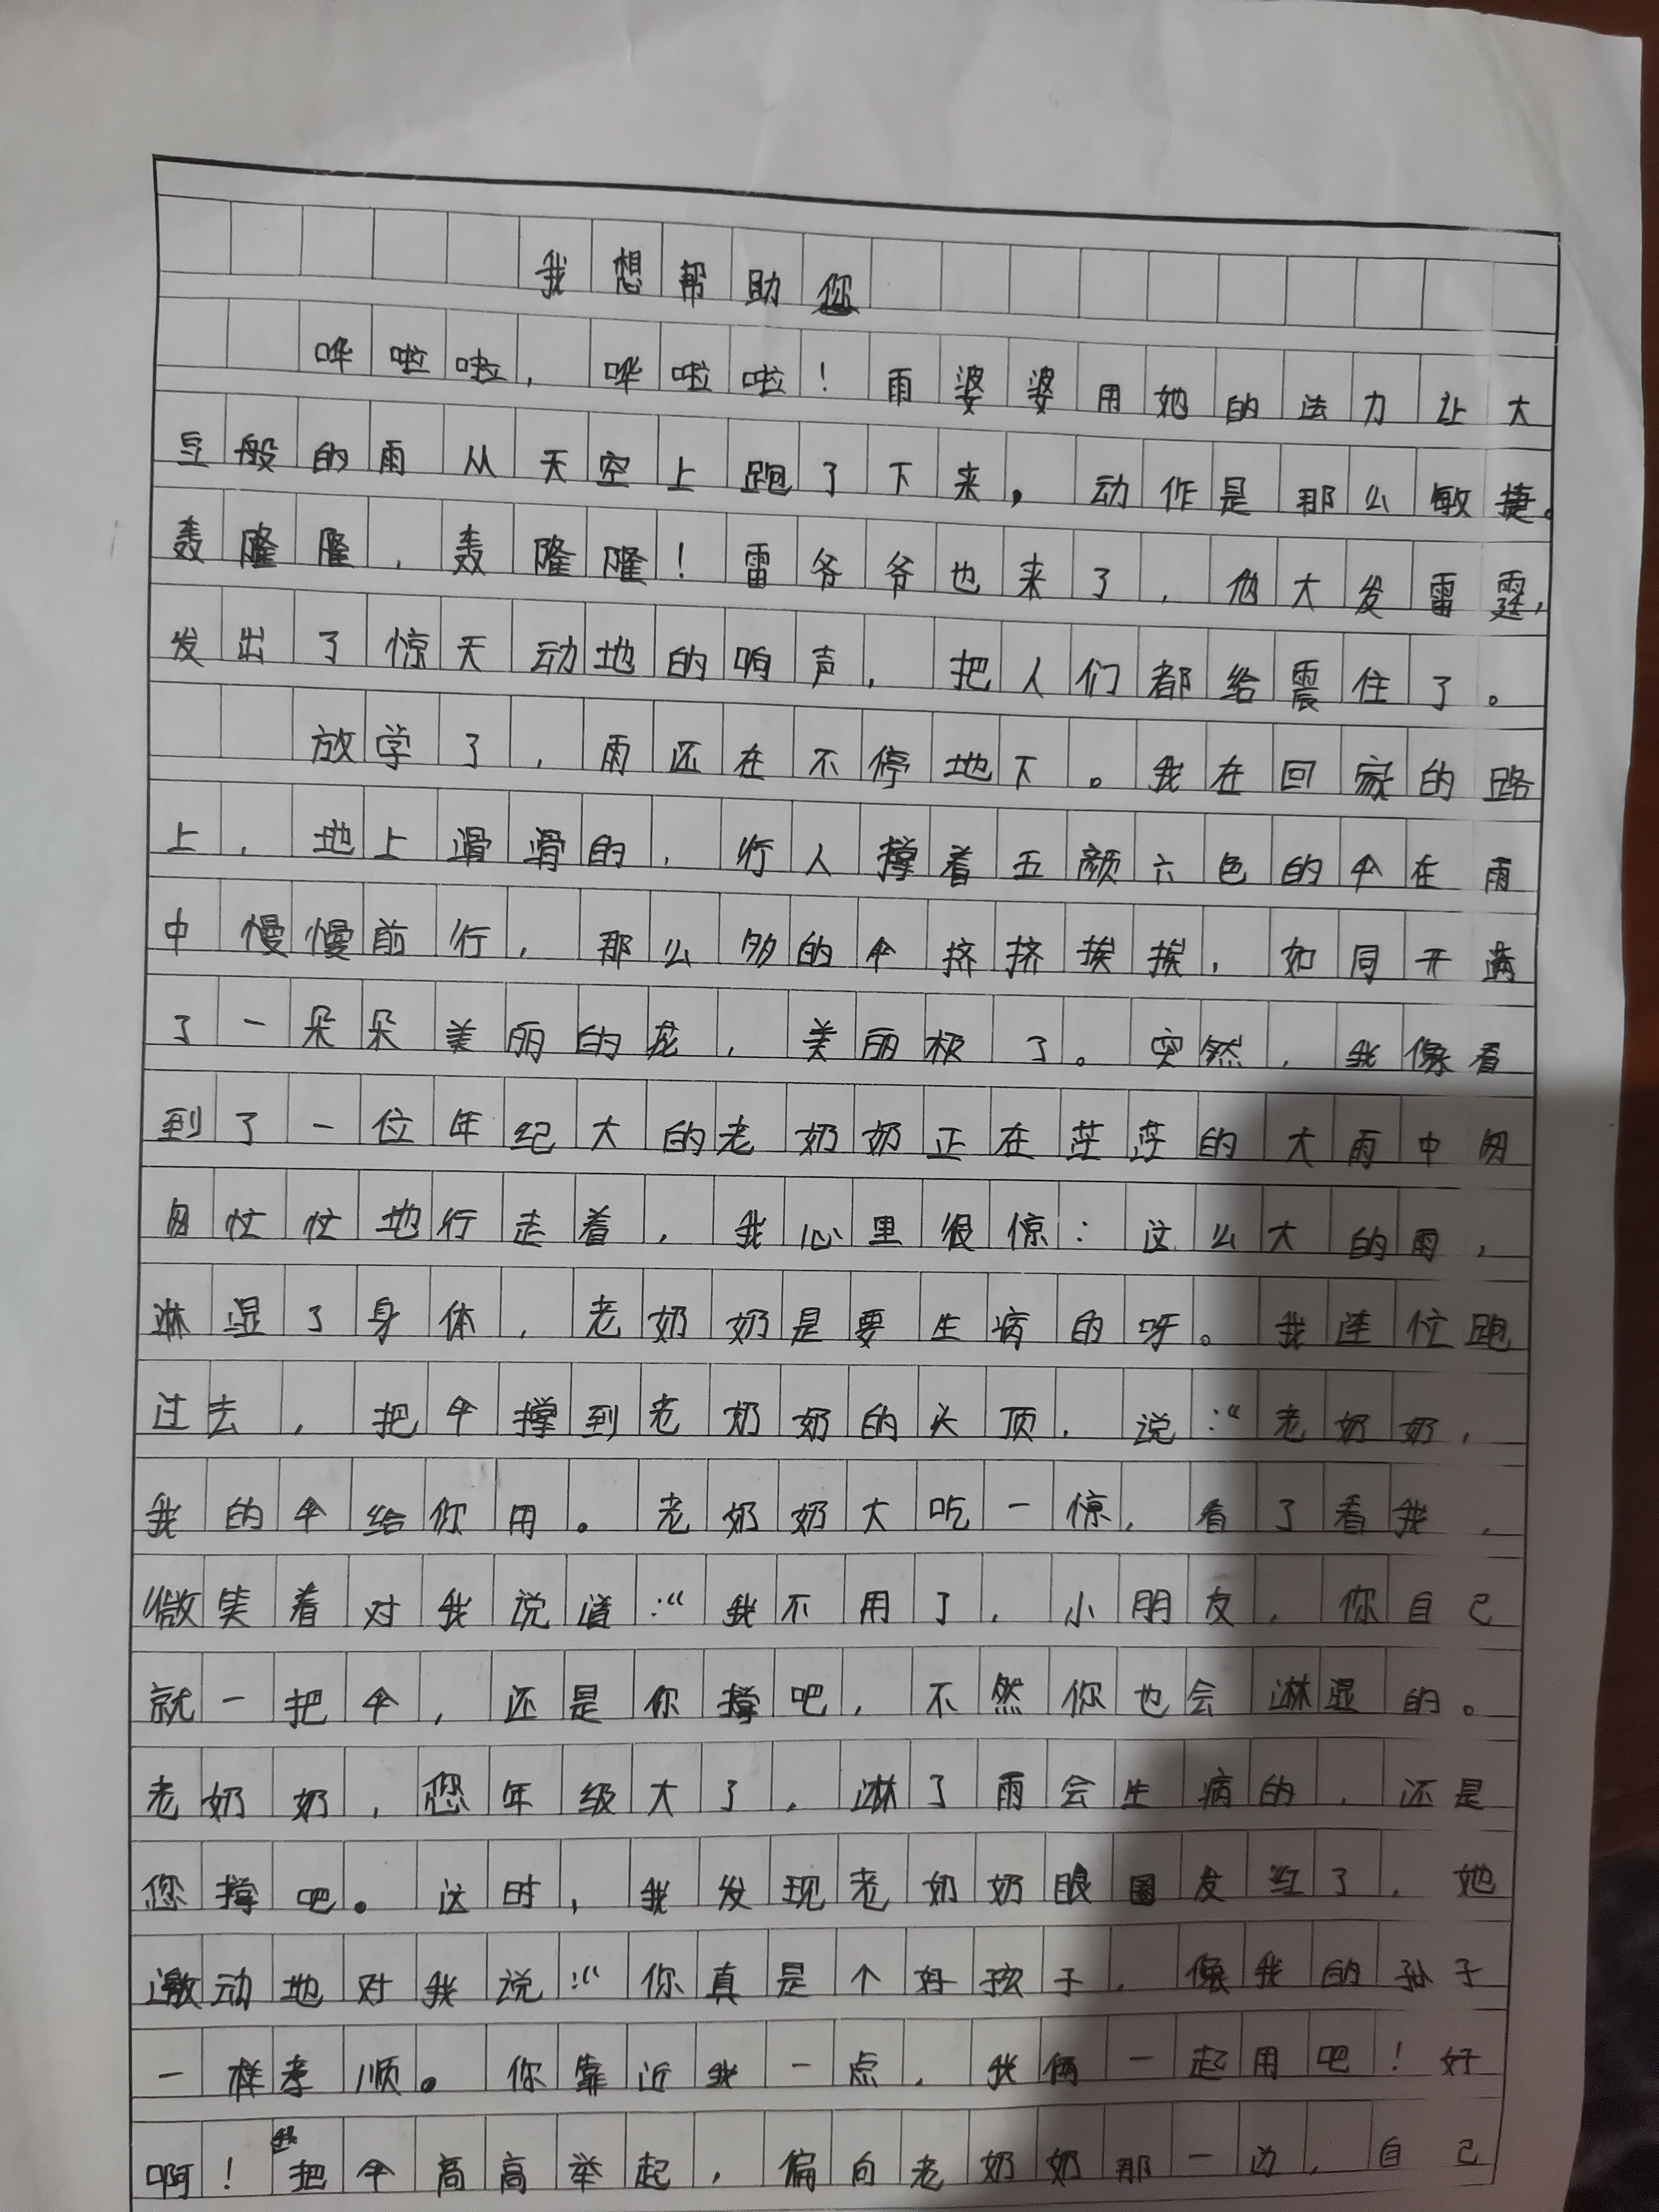 我想帮助您
哗啦啦，哗啦啦！雨婆婆用她的法力让大
豆般的雨从天空上跑了下来，动作是那么敏捷。
轰隆隆，轰隆隆！雷爷爷也来了，他大发雷霆，
发出了惊天动地的响声，把人们都给震住了。
放学了，雨还在不停地下。我在回家的路
上，地上滑滑的，行人撑着五颜六色的伞在雨
中慢慢前行，那么多的伞挤挤挨挨，如同开满
了一朵朵美丽的花，美丽极了。突然，我像看
到了一位年纪大的老奶奶正在茫茫的大雨中匆
匆忙忙地行走着，我心里很惊：这么大的雨，
淋湿了身体，老奶奶是要生病的呀。我连忙跑
过去，把伞撑到老奶奶的头顶，说：“老奶奶，
我的伞给你用。老奶奶大吃一惊，看了看我，
微笑着对我说道：“我不用了，小朋友，你自己
就一把伞，还是你撑吧，不然你也会淋湿的。
老奶奶，您年级大了，淋了雨会生病的，还是
您撑吧。这时，我发现老奶奶眼圈发红了，她
激动地对我说：“你真是个好孩子，像我的孙子
一样孝顺。你靠近我一点，我俩一起用吧！好
啊！我把伞高高举起，偏向老奶奶那一边，自己